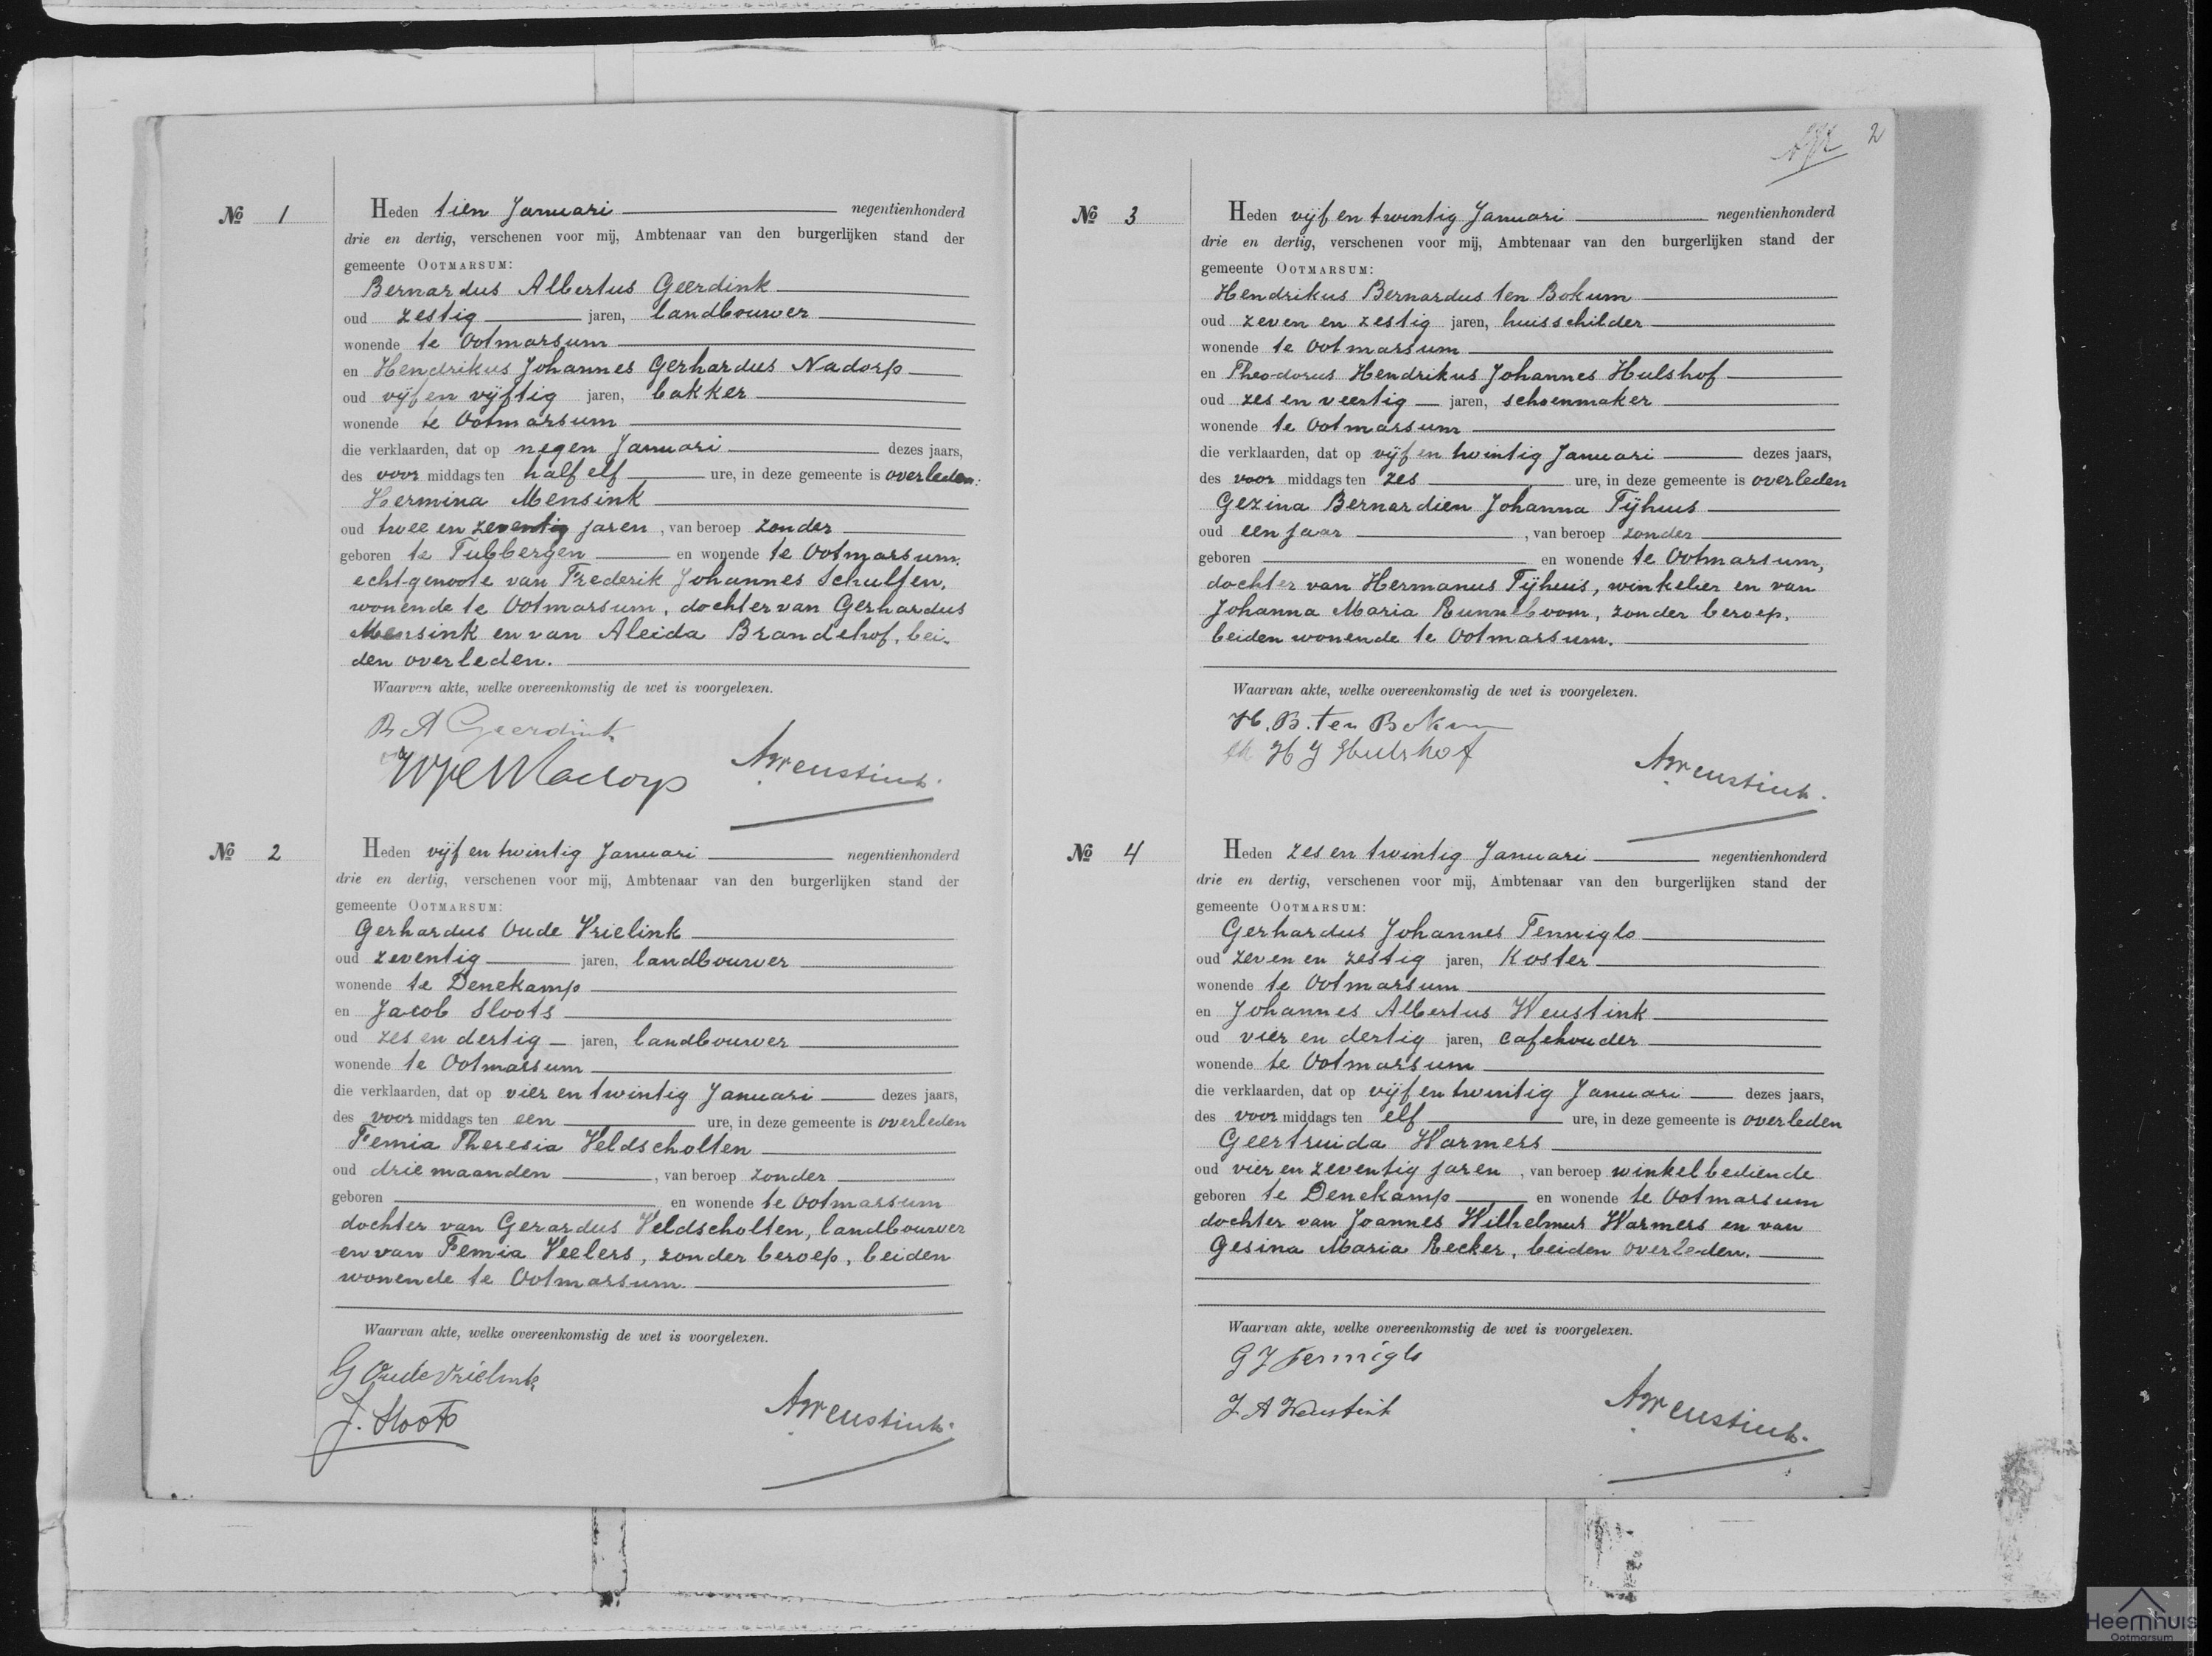 № 1
Heden tien Januari negentienhonderd
drie en dertig, verschenen voor mij, Ambtenaar van den burgerlijken stand der
gemeente OOTMARSUM:
Bernardus Albertus Geerdink
oud zestig jaren, landbouwer
wonende te Ootmarsum
en Hendrikus Johannes Gerhardus Nadorp
oud vijf en vijftig jaren, bakker
wonende te Ootmarsum
die verklaarden, dat op negen Januari dezes jaars,
des voor middags ten half elf ure, in deze gemeente is overleden:
Hermina Mensink
oud twee en zeventig jaren, van beroep zonder
geboren te Tubbergen en wonende te Ootmarsum,
echtgenoote van Frederik Johannes Schulten,
wonende te Ootmarsum, dochter van Gerhardus
Mensink en van Aleida Brandehof, bei-
den overleden.
Waarvan akte, welke overeenkomstig de wet is voorgelezen.
B A Geerdink
Nadorp
AWeustink.
№ 2
Heden vijf en twintig Januari negentienhonderd
drie en dertig, verschenen voor mij, Ambtenaar van den burgerlijken stand der
gemeente OOTMARSUM:
Gerhardus Oude Vrielink
oud zeventig jaren, landbouwer
wonende te Denekamp
en Jacob Sloots
oud zes en dertig jaren, landbouwer
wonende te Ootmarsum
die verklaarden, dat op vier en twintig Januari dezes jaars,
des voor middags ten een ure, in deze gemeente is overleden
Femia Theresia Veldscholten
oud drie maanden, van beroep zonder
geboren en wonende te Ootmarsum
dochter van Gerardus Veldscholten, landbouwer
en van Femia Veelers, zonder beroep, beiden
wonende te Ootmarsum.
Waarvan akte, welke overeenkomstig de wet is voorgelezen.
G Oude Vrielink
J. Sloots
AWeustink.
2
№ 3
Heden vijf en twintig Januari negentienhonderd
drie en dertig, verschenen voor mij, Ambtenaar van den burgerlijken stand der
gemeente OOTMARSUM:
Hendrikus Bernardus ten Bokum
oud zeven en zestig jaren, huisschilder
wonende te Ootmarsum
en Theodorus Hendrikus Johannes Hulshof
oud zes en veertig jaren, schoenmaker
wonende te Ootmarsum
die verklaarden, dat op vijf en twintig Januari dezes jaars,
des voor middags ten zes ure, in deze gemeente is overleden
Gezina Bernardien Johanna Tijhuis
oud een jaar, van beroep zonder
geboren en wonende te Ootmarsum,
dochter van Hermanus Tijhuis, winkelier en van
Johanna Maria Runneboom, zonder beroep,
beiden wonende te Ootmarsum.
Waarvan akte, welke overeenkomstig de wet is voorgelezen.
H. B. ten Bokum
Th H J Hulshof
AWeustink.
№ 4
Heden zes en twintig Januari negentienhonderd
drie en dertig, verschenen voor mij, Ambtenaar van den burgerlijken stand der
gemeente OOTMARSUM:
Gerhardus Johannes Tenniglo
oud zeven en zestig jaren, Koster
wonende te Ootmarsum
en Johannes Albertus Weustink
oud vier en dertig jaren, cafehouder
wonende te Ootmarsum
die verklaarden, dat op vijf en twintig Januari dezes jaars,
des voor middags ten elf ure, in deze gemeente is overleden
Geertruida Warmers
oud vier en zeventig jaren, van beroep winkelbediende
geboren te Denekamp en wonende te Ootmarsum
dochter van Joannes Wilhelmus Warmers en van
Gesina Maria Recker, beiden overleden.
Waarvan akte, welke overeenkomstig de wet is voorgelezen.
G J Tenniglo
J. A Weustink
AWeustink.
Heemhuis
Ootmarsum